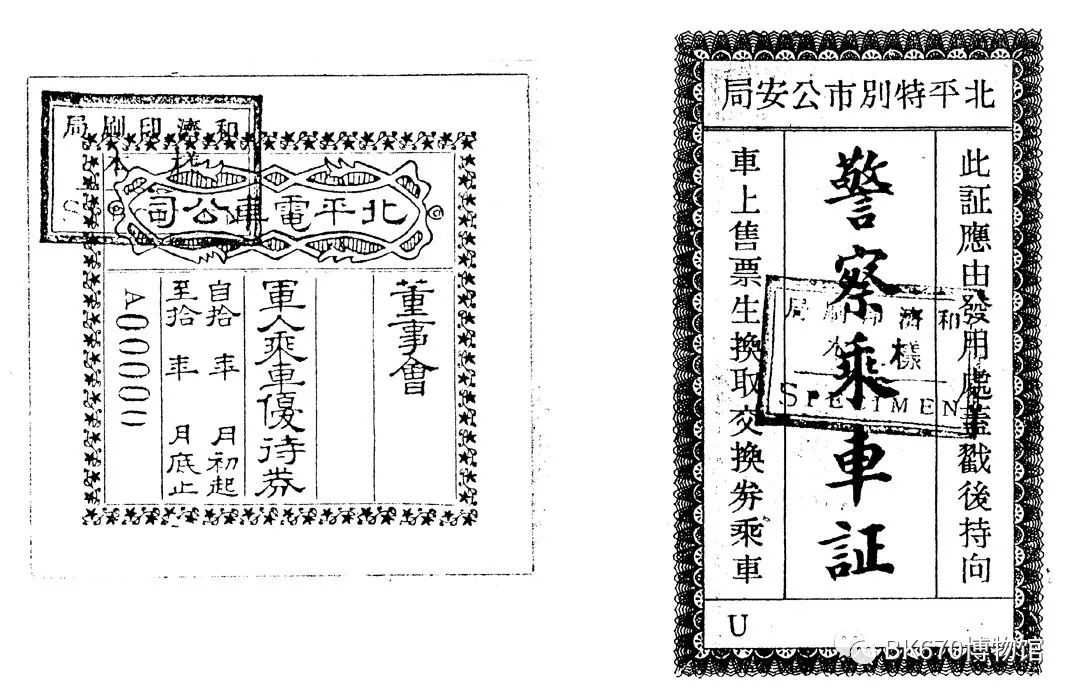 和濟印刷局
樣本
北平電車公司
董事會
軍人乘車優待券
自拾 年 月初起
至拾 年 月底止
A00000
北平特別市公安局
此証應由發用處蓋戳後持向
警察乘車証
車上售票生換取交換券乘車
和濟印刷局
樣本
SPECIMEN
U
BK670博物馆